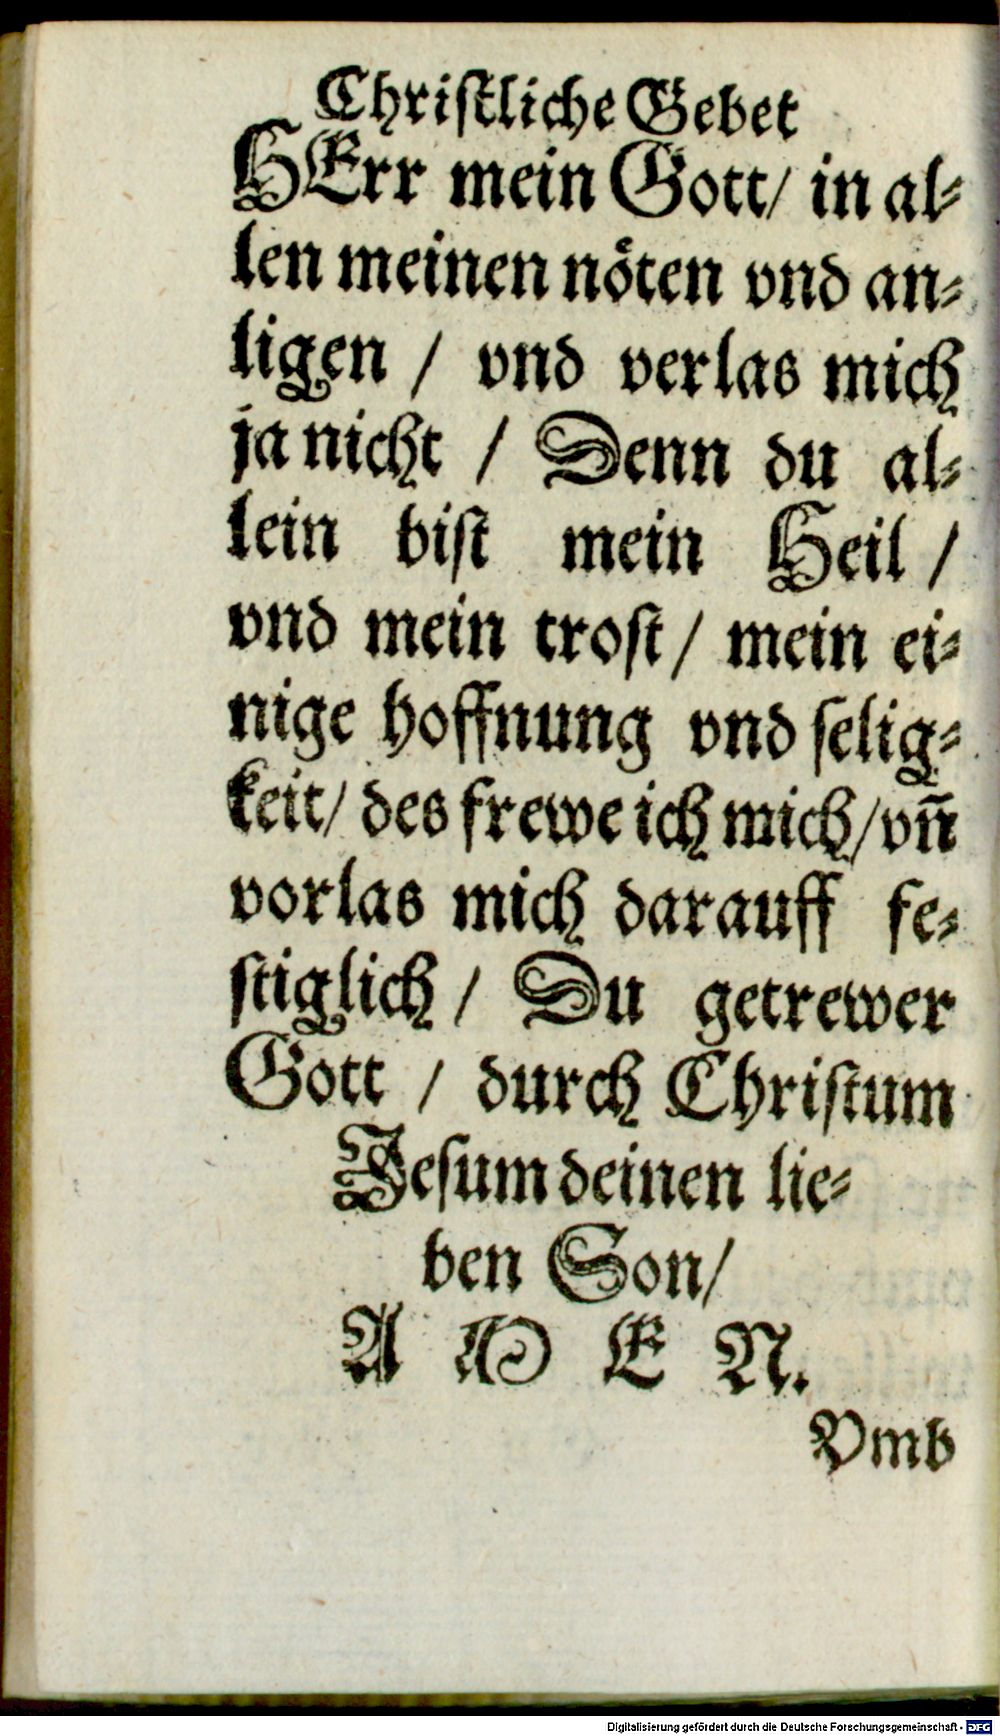 Chriſtliche Gebet
HErr mein Gott/ in al⸗
len meinen nöten vnd an⸗
ligen / vnd verlas mich
ja nicht / Denn du al⸗
lein biſt mein Heil /
vnd mein troſt/ mein ei⸗
nige hoffnung vnd ſelig⸗
keit/ des frewe ich mich/ vñ
vorlas mich darauff fe⸗
ſtiglich / Du getrewer
Gott / durch Chriſtum
Jeſum deinen lie⸗
ben Son/
A M E N.
Vmb
Digitalisierung gefördert durch die Deutsche Forschungsgemeinschaft - DFG